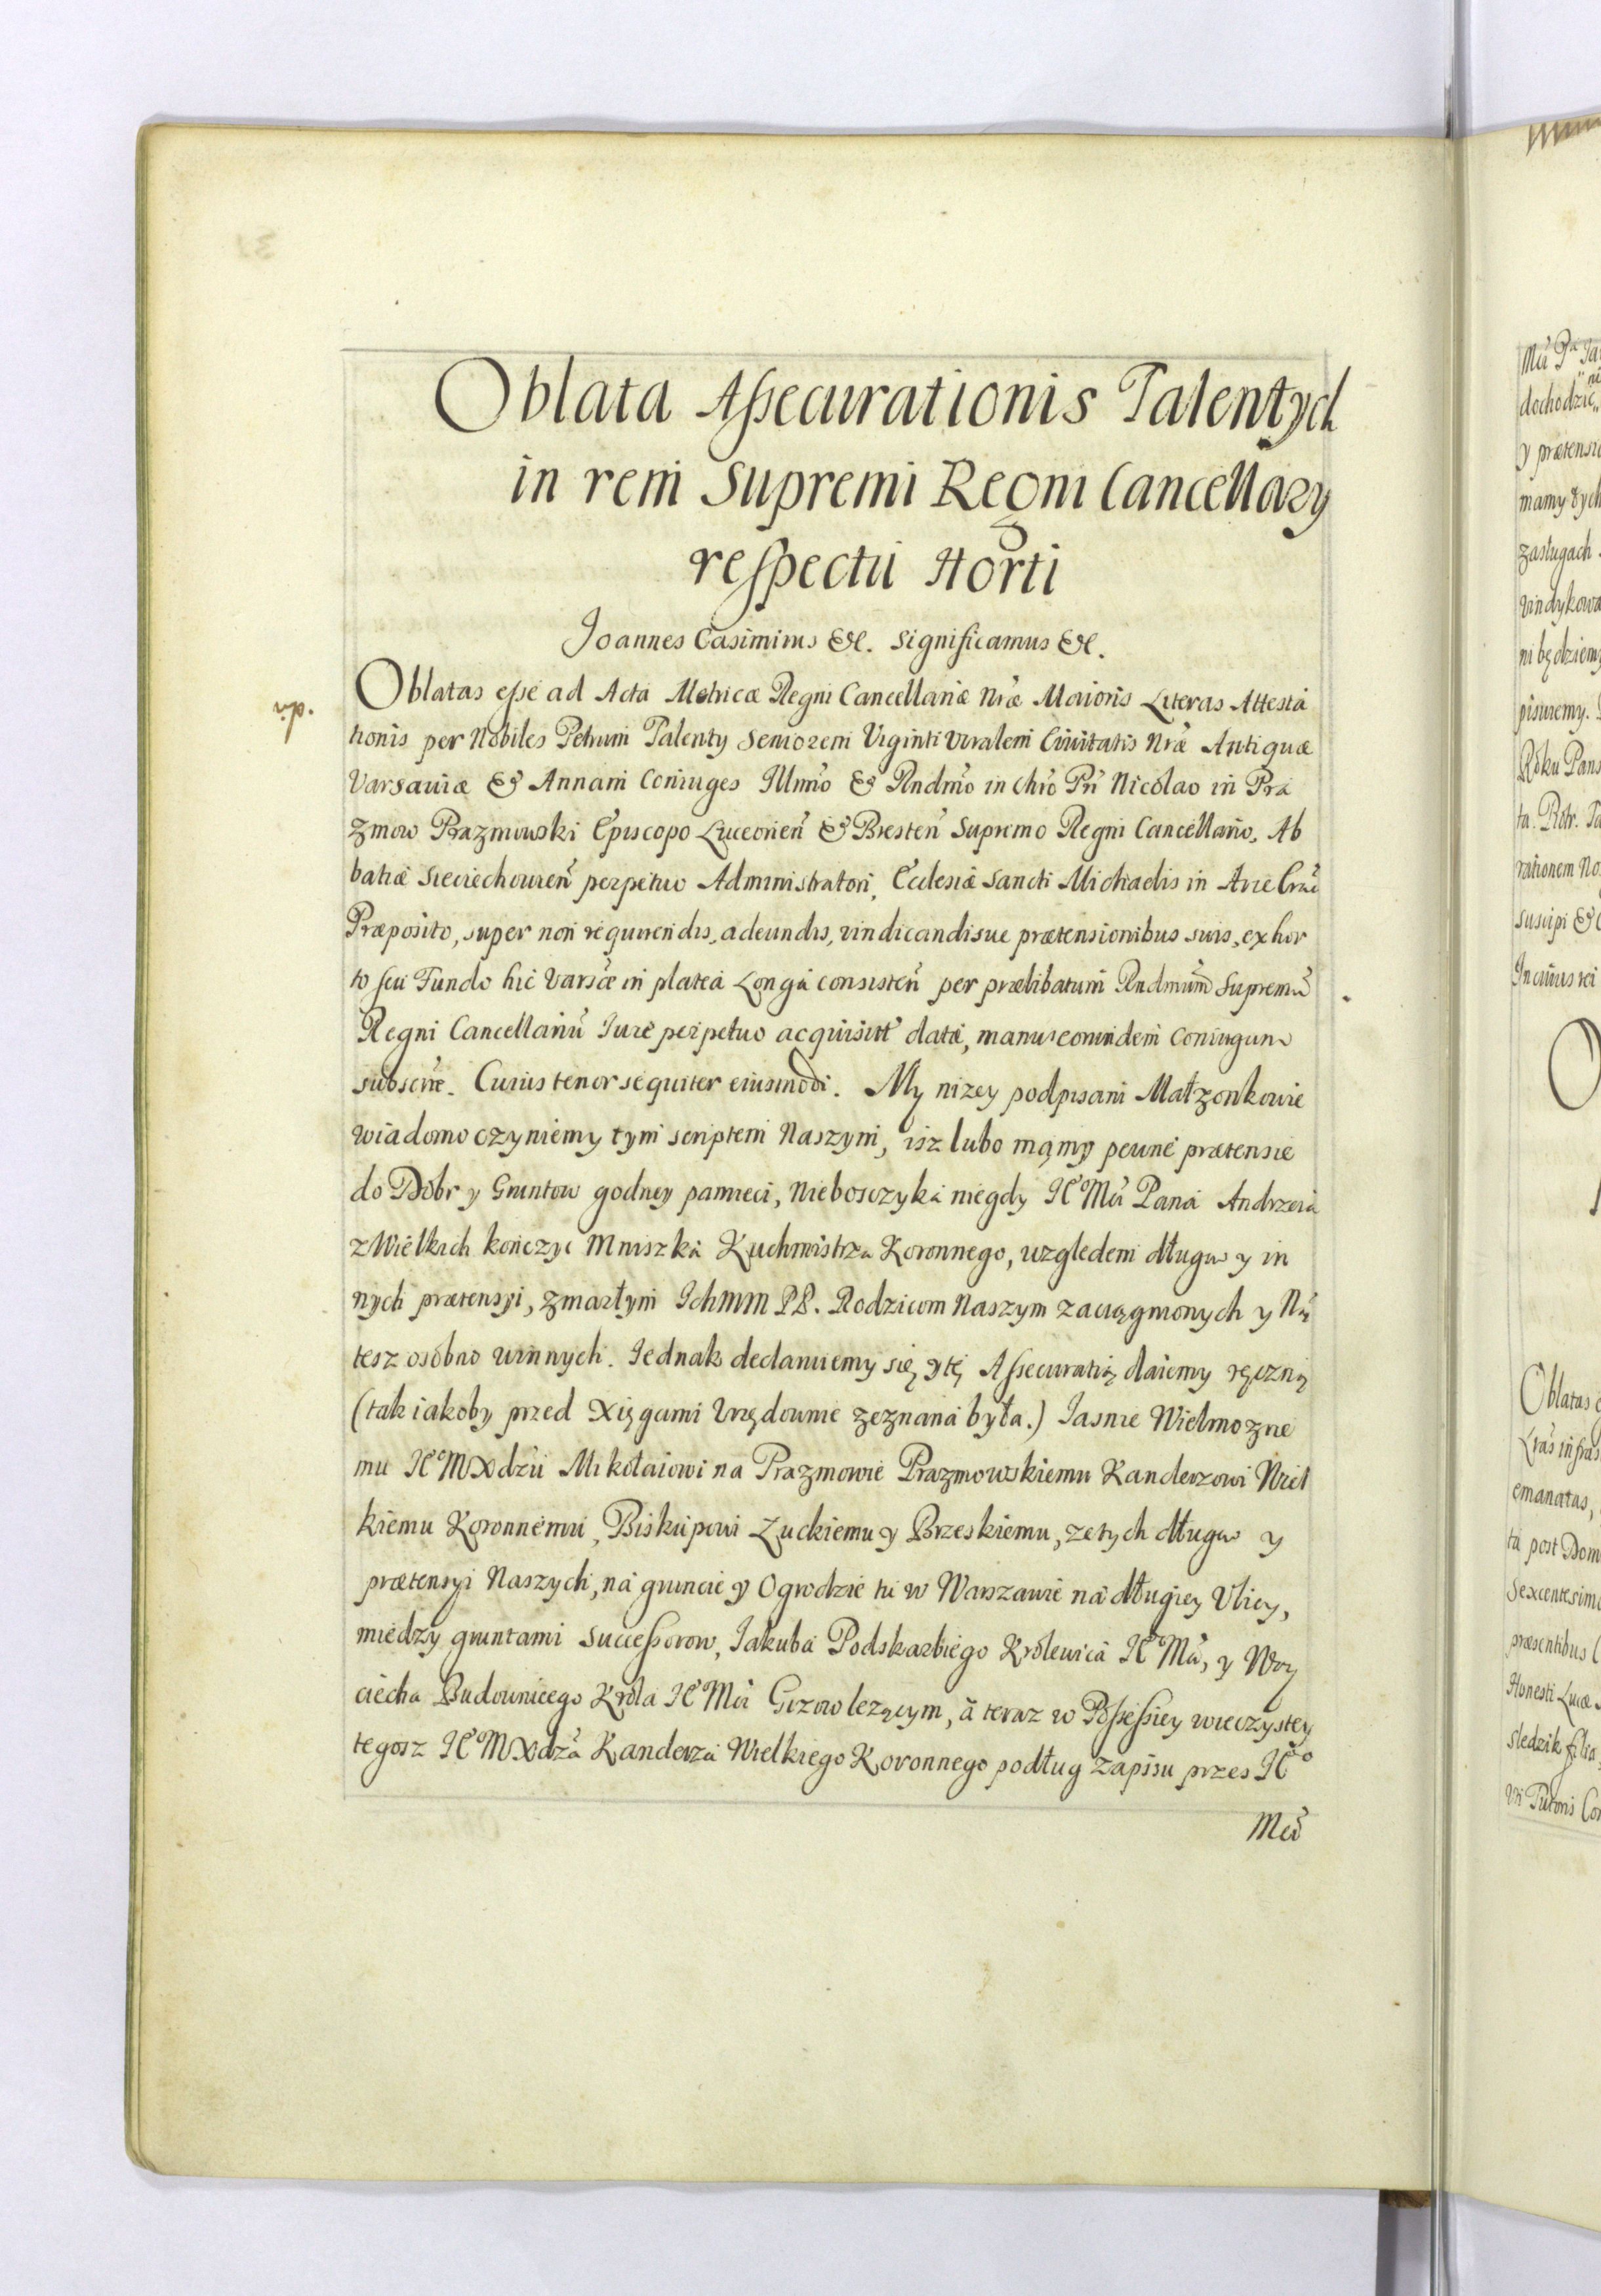 Oblata Assecurationis Talentych
in rem Supremi Regni Cancellarÿ
respectu Horti
Joannes Casimirus &c. Significamus &c.
Oblatas esse ad Acta Metricæ Regni Cancellariæ Nræ Maioris Literas Attesta
tionis per Nobiles Petrum Talenty Seniorem Viginti Viralem Civitatis Nræ Antiquæ
Varsaviæ & Annam Coniuges Illmo & Rndmo in Chro Pri Nicolao in Pra
zmow Prazmowski Episcopo Luceorien & Bresten Supremo Regni Cancellario, Ab
batiæ Sieciechovien perpetuo Administratori, Ecclesiæ Sancti Michaelis in Arce Crac
Præposito, super non requirendis, adeundis, vindicandisue prætensionibus suis, ex hor
to seu Fundo hic Varsæ in platea Longa consisten per prælibatum Rndmum Supremu
Regni Cancellariu Iure perpetuo acquisitt data, manu eorundem Coniugum
subscrie. Cuius tenor sequiter eiusmodi. My nizey podpisani Małzonkowie
wiadomo czyniemy tym scriptem Naszym, isz lubo mąmy pewne prætensie
do Dobr y Gruntow godney pamieci, Nieboszczyka niegdy IeM Pana Andrzeia
z Wielkich kończyc Mniszka Kuchmistrza Koronnego, względem długw y in
nych prætensyi, zmarłym Ichmm PP. Rodzicom Naszym zaciągnionych y Ną
tesz osobno winnych. Jednak declaruiemy się, y tę Assecuratią daiemy ręczną
(tak iakoby przed Xięgami Urzędownie zeznana była.) Iasnie Wielmozne
mu IeMXdzu Mikołaiowi na Prazmowie Prazmowskiemu Kanclerzowi Wiel
kiemu Koronnemu, Biskupowi Łuckiemu y Brzeskiemu, ze tych długw y
prætensyi Naszych, na gruncie y Ogrodzie tu w Warszawie na długiey Ulicy,
miedzy gruntami Successorow, Jakuba Podskarbiego Krolewica Ie Ma, y Woy
ciecha Budowniczego Krola IeMa Gizow lezącym, à teraz w Possessiey wieczystey
tegosz IeMXdza Kanclerza Wielkiego Koronnego podług zapisu przes Ieo
Ma